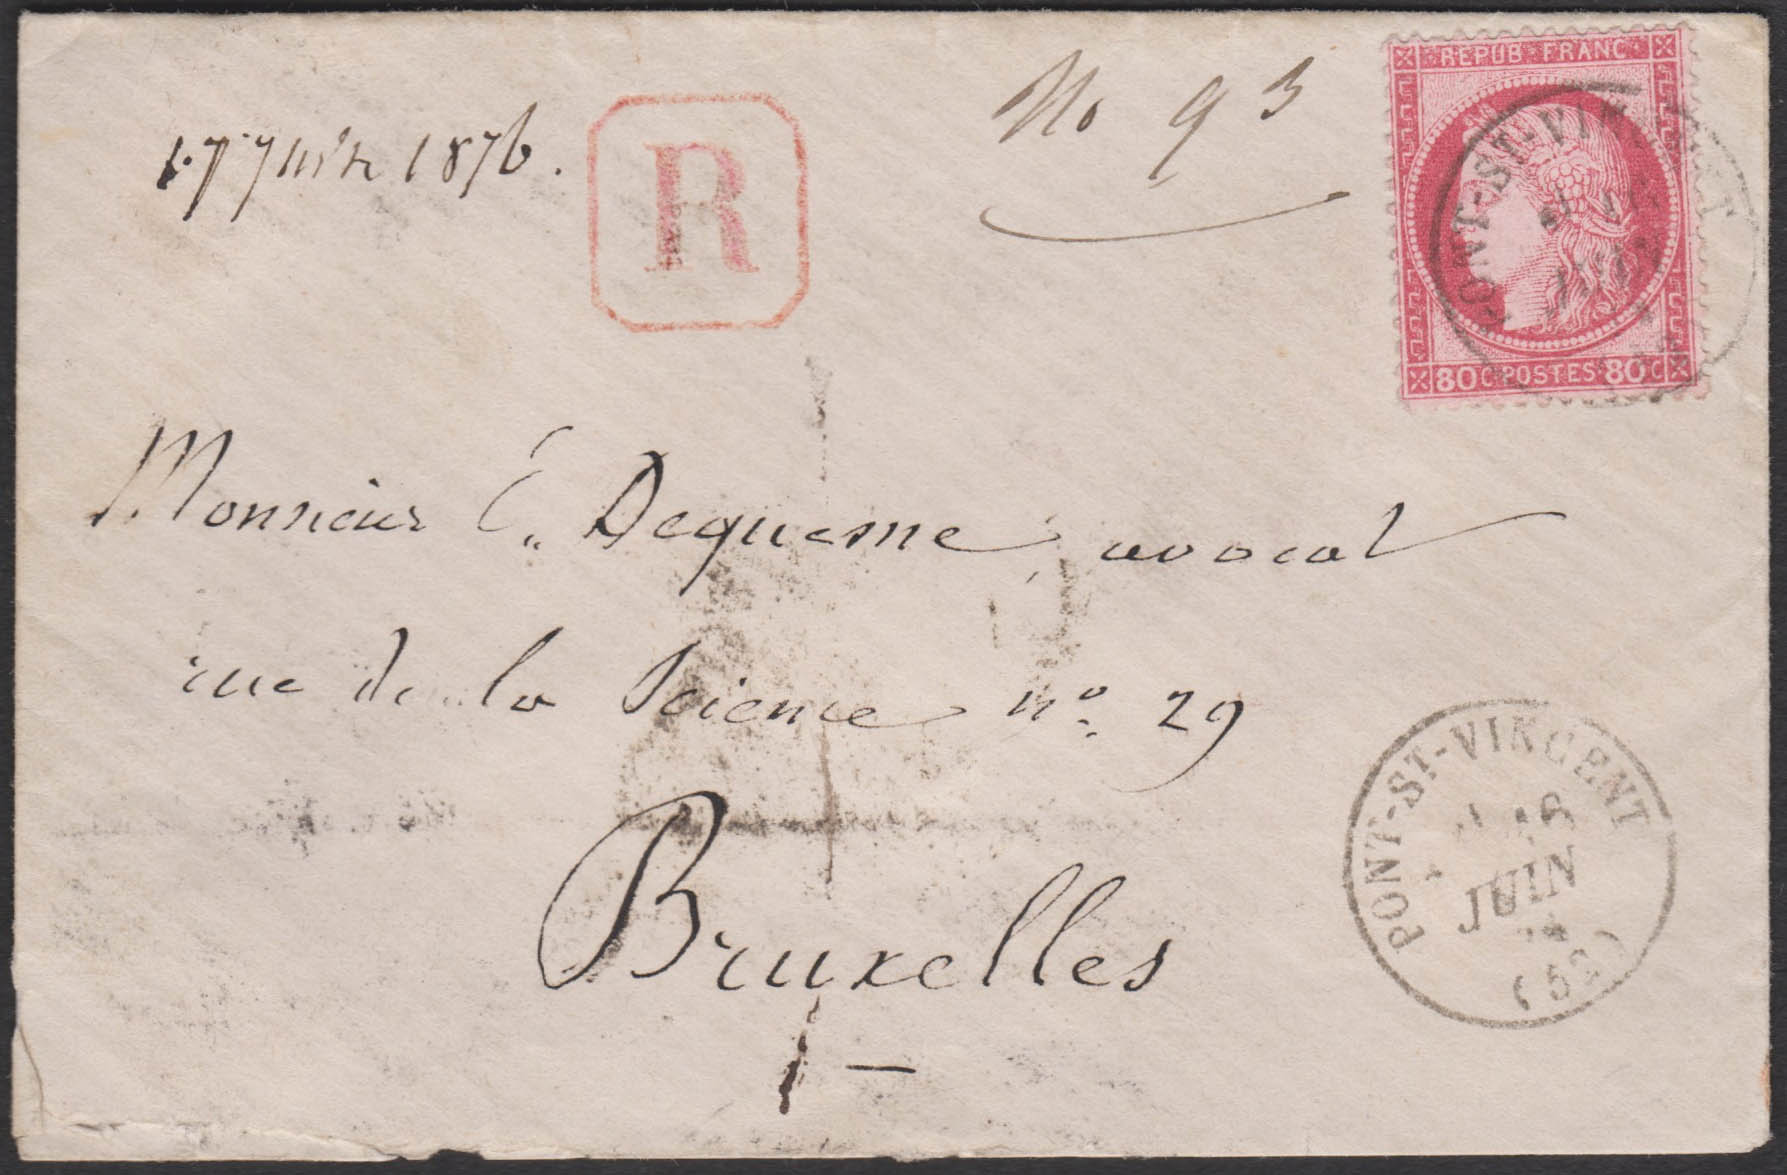 17 Juin 1876.
R
No 93
REPUB FRANC
80 C POSTES 80 C
PONT-ST-VINCENT
JUIN
Monsieur E. Dequesne, avocat
rue de la Science no. 29
Bruxelles
PONT-ST-VINCENT
16
JUIN
(52)